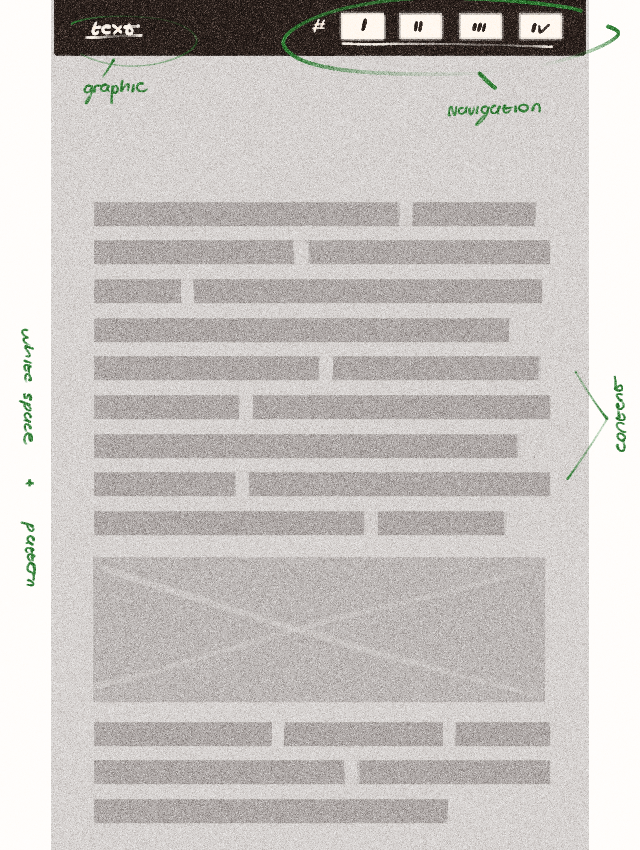 text # I II III IV
graphic
Navigation
white space + pattern
content